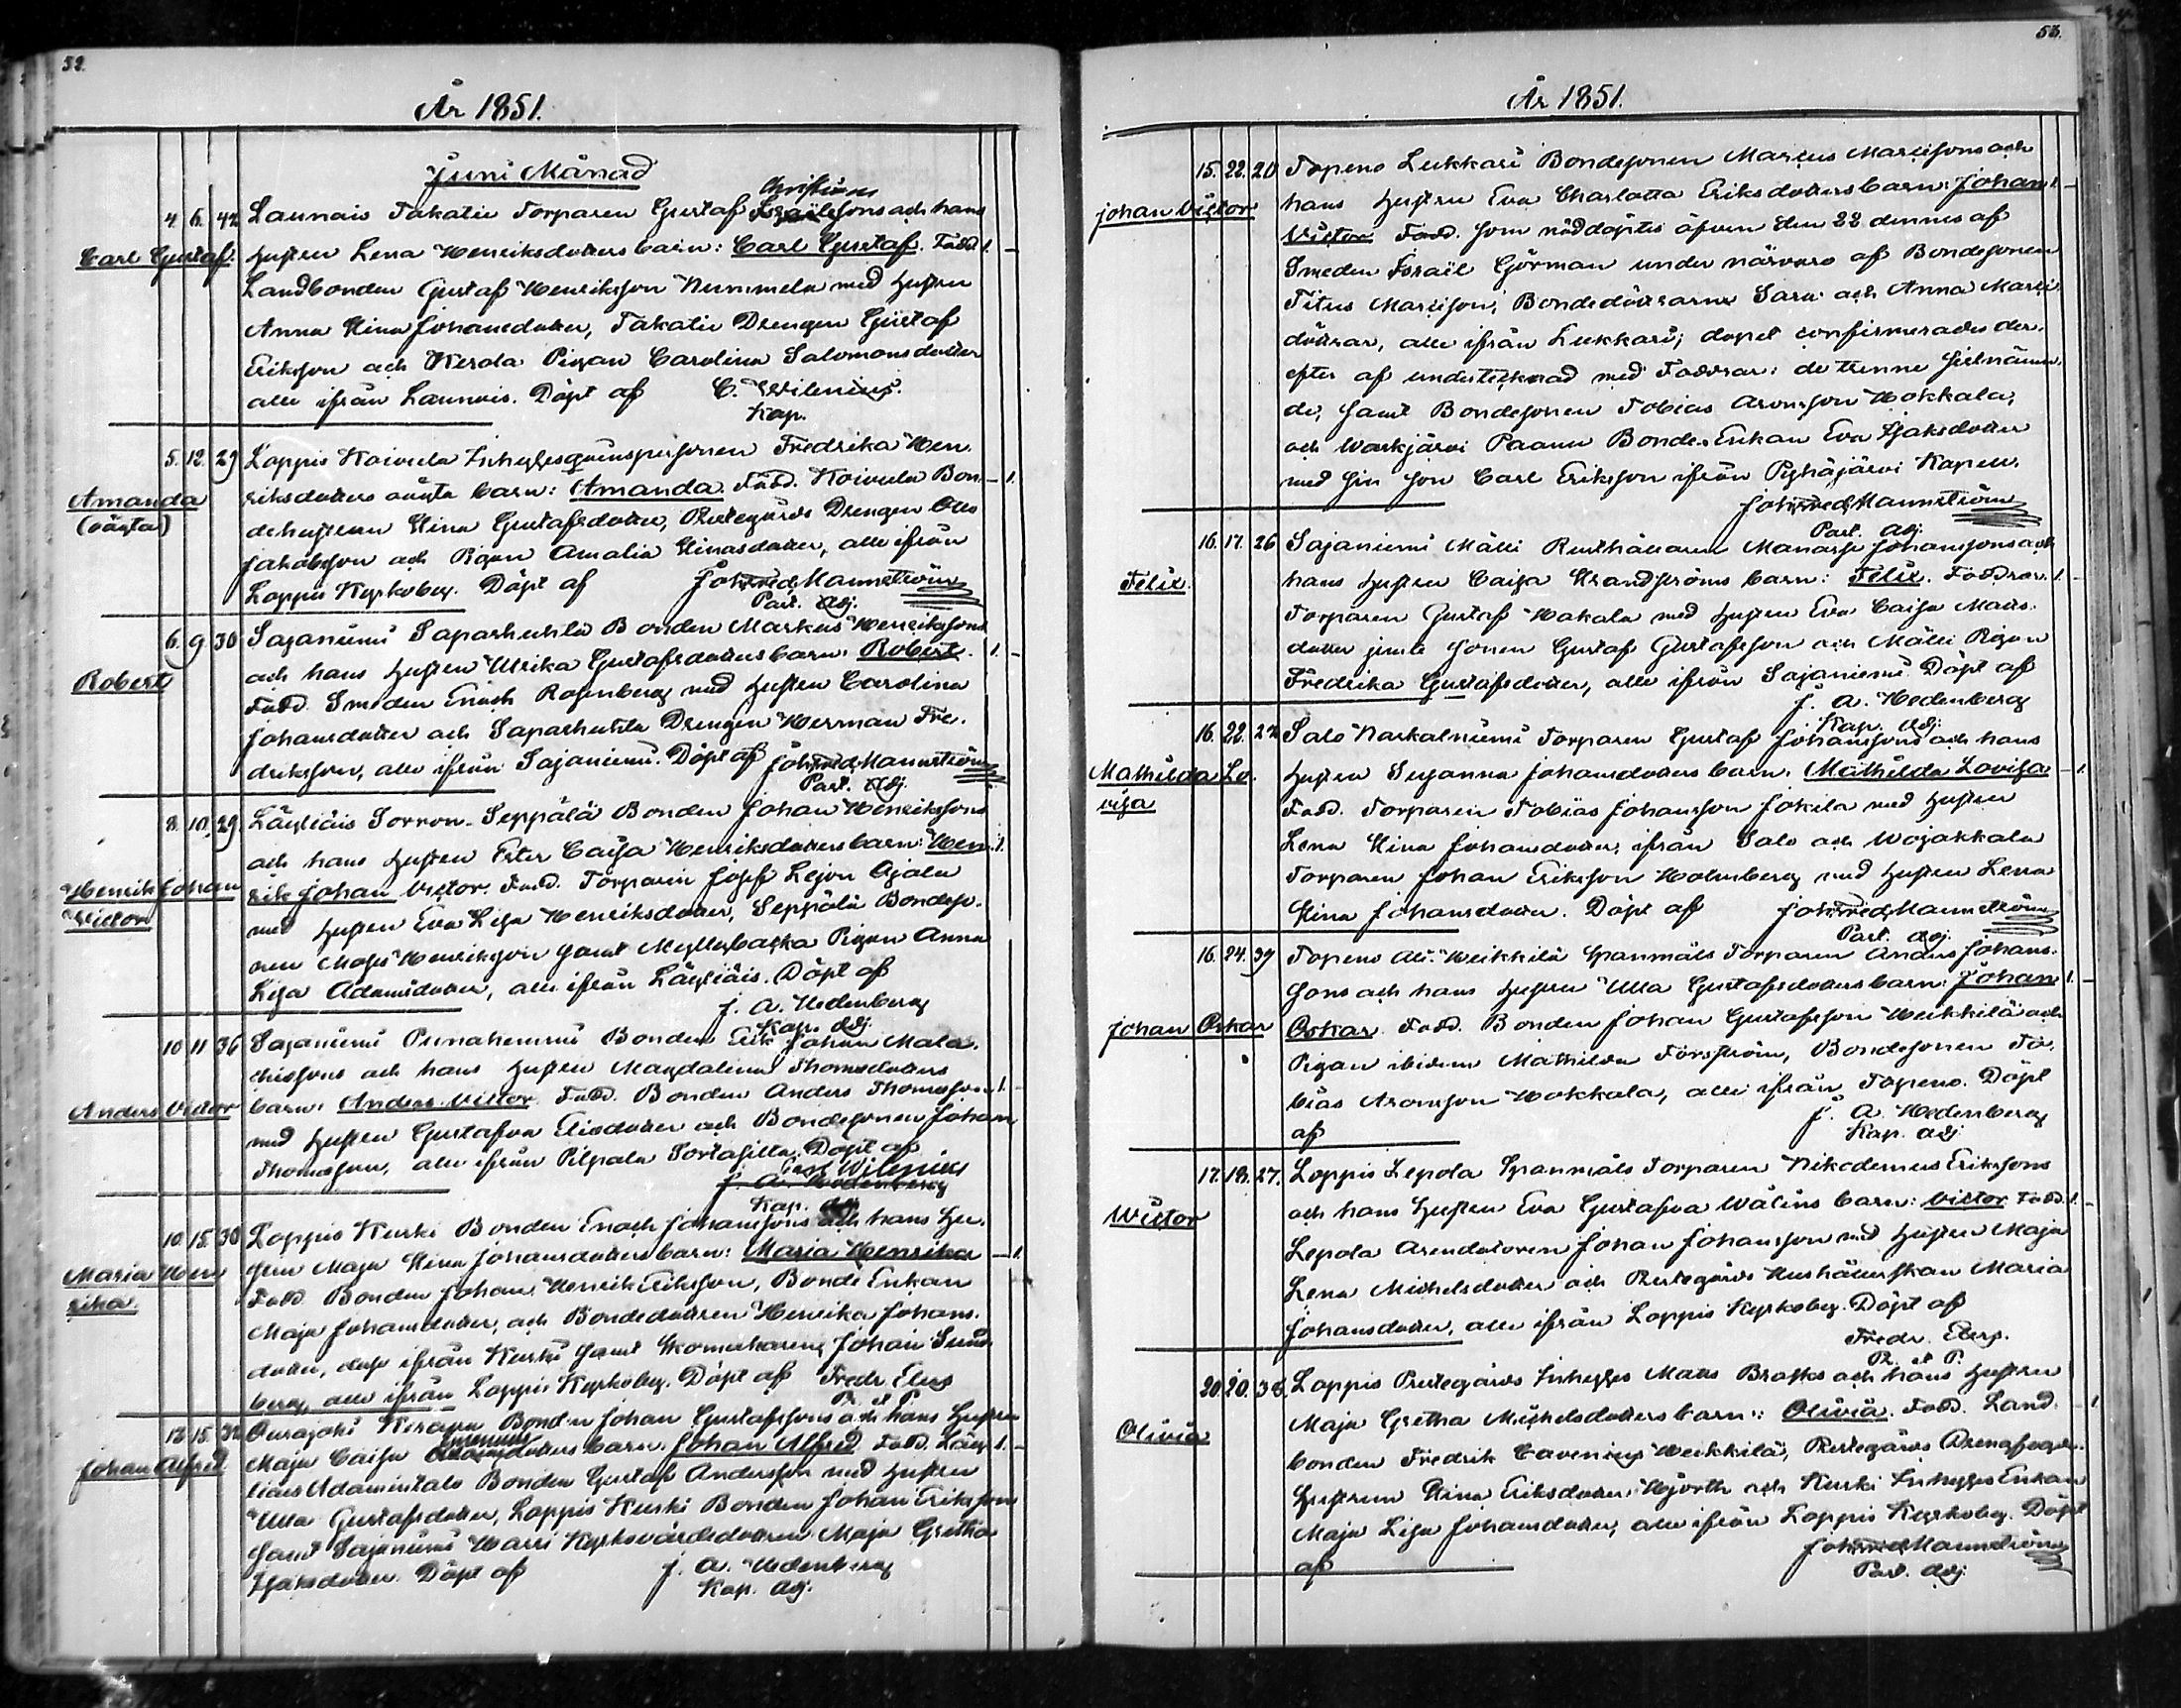 52.
År 1851.
Juni Månad
Christians
4. 6. 42 Launois Takatie Torparen Gustaf sons och hans
Carl Gustaf. hustru Lena Henriksdotters barn: Carl Gustaf. Fadd. 1. –
Landbonden Gustaf Henriksson Nummela med hustru
Anna Stina Johansdotter, Takatie Drengen Gustaf
Eriksson och Kerola Pigan Carolina Salomonsdotter
alle ifrån Launois. Döpt af C. Wilenius.
Kap.
5. 12. 29 Loppis Koivula Inhyses Fredrika Hen-
Amanda riksdotters oägta barn: Amanda. Fadd. Koivula Bon- – 1.
(oägta) dehustrun Stina Gustafsdotter, Prestegårds Drengen Otto
Jakobsson och Pigan Amalia Stinasdotter, alle ifrån
Loppis Kyrkoby. Döpt af Joh Fred Mannström
Past. Adj.
6. 9. 30 Sajaniemi Saparhuhta Bonden Markus Henrikssons
Robert och hans hustru Ulrika Gustafsdotters barn: Robert. 1. –
Fadd. Smeden Enoch Rosenberg med hustru Carolina
Johansdotter och Saparhuhta Drengen Herman Fre-
driksson, alle ifrån Sajaniemi. Döpt af Joh Fred Mannström
Past. Adj.
8. 10. 29. Läyliäis Sorron-Seppälä Bonden Johan Henrikssons
och hans hustru Ester Caisa Henriksdotters barn: Hen- 1.
Henrik Johan rik Johan Victor. Fadd. Torparen Josef Lejon Ojala
Victor med hustru Eva Lisa Henriksdotter, Seppälä Bondeso-
nen Moses Henriksson samt Myllybacka Pigan Anna
Lisa Adamsdotter, alle ifrån Läyliäis. Döpt af
J. A. Hedenberg
Kap. Adj.
10 11 36 Sajaniemi Pirnahenmi Bonden Erik Johan Mala-
chissons och hans hustru Magdalena Thomsdotters
Anders Victor barn: Anders Victor Fadd. Bonden Anders Thomasson 1. –
med hustru Gustafva Eliedotter och Bondesonen Johan
Thomasson, alle ifrån Pilpala Sortasilla. Döpt af
Carl Wilenius
J. A. Hedenberg
Kap.
10. 15. 30 Loppis Kurki Bonden Enoch Johanssons och hans hu-
stru Maja Stina Johansdotters barn: Maria Henrika – 1.
Maria Hen Fadd. Bonden Johan Henrik Eriksson, Bonde Enkan
rika. Maja Johansdotter, och Bondedottren Henrika Johans-
dotter, desse ifrån Kurki samt Skomakaren Johan Sund-
berg, alle ifrån Loppis Kyrkoby. Döpt af Fredr. Elers
P. et P.
12 15 32 Ourajoki Bonden Johan Gustafssons och hans hustru
Johan Alfred Maja Caisa barn. Johan Alfred. Fadd. Läyl- 1. –
iäis Adamintalo Bonden Gustaf Andersson med hustru
Ulla Gustafsdotter, Loppis Kurki Bonden Johan Eriksson
samt Sajaniemi Harri Kyrkovärdsdottren Maja Gretha
Isaksdotter. Döpt af J. A. Hedenberg
Kap. Adj.
53.
År 1851.
15. 22. 20 Topeno Lukkari Bondesonen Marcus Marcissons och
Johan Victor hans hustru Eva Charlotta Eriksdotters barn: Johan 1. –
Victor Fadd. som nöddöptes äfven den 22 dennes af
Smeden Israël Görman under närvaro af Bondesonen
Titus Marcisson, Bondedöttrarne Sara och Anna Marci-
döttrar, alle ifrån Lukkari; dopet confirmerades der-
efter af undertecknad med Faddrar: de trenne sistnämn-
de, samt Bondesonen Tobias Aronsson Hokkala,
och Warkjärvi Paanu Bonde-Enkan Eva Isaksdotter
med sin son Carl Eriksson ifrån Pyhäjärvi Kapell.
Joh Fred Mannström
Past. Adj.
16. 17. 26 Sajaniemi Mälli Rusthållaren Manasse Johanssons och
Felix. hans hustru Caisa Strandströms barn: Felix. Faddrar. 1. –
Torparen Gustaf Hakala med hustru Eva Caisa Matts-
dotter jemte sonen Gustaf Gustafsson och Mälli Pigan
Fredrika Gustafsdotter, alle ifrån Sajaniemi. Döpt af
J. A. Hedenberg
Kap. Adj.
16. 22. 22 Salo Naskalniemi Torparen Gustaf Johanssons och hans
Mathilda Lo- hustru Susanna Johansdotters barn. Mathilda Lovisa – 1.
visa Fadd. Torparen Tobias Johansson Jokila med hustru
Lena Stina Johansdotter, ifrån Salo och Wojakkala
Torparen Johan Eriksson Holmberg med hustru Lena
Stina Johansdotter. Döpt af Joh Fred Mannström
Past. Adj.
16. 24. 39 Topeno Ali-Heikkilä Spanmåls Torparen Anders Johans-
sons och hans hustru Ulla Gustafsdotters barn: Johan 1. –
Johan Oskar Oskar. Fadd. Bonden Johan Gustafsson Heikkilä och
Pigan ibidem Mathilda Förström, Bondesonen To-
bias Aronsson Hokkala, alle ifrån Topeno. Döpt
af J. A. Hedenberg
Kap. Adj
17. 18. 27. Loppis Lepola Spanmåls Torparen Nikodemus Erikssons
Wictor och hans hustru Eva Gustafva Wålins barn: Victor Fadd. 1. –
Lepola Arendatoren Johan Johansson med hustru Maja
Lena Michelsdotter och Prestegårds Hushållerskan Maria
Johansdotter, alle ifrån Loppis Kyrkoby. Döpt af
Fredr. Elers.
P. et P.
20. 20. 38. Loppis Prestegårds Inhyses Matts Brasks och hans hustru
Maja Gretha Michelsdotters barn: Olivia. Fadd. Land- – 1
Olivia bonden Fredrik Cavenius Heikkilä, Prestegårds
hustrun Stina Eriksdotter Hjorth och Kurki Inhyses Enkan
Maja Lisa Johansdotter, alle ifrån Loppis Kyrkoby. Döpt
af Joh Fred Mannström
Past. Adj